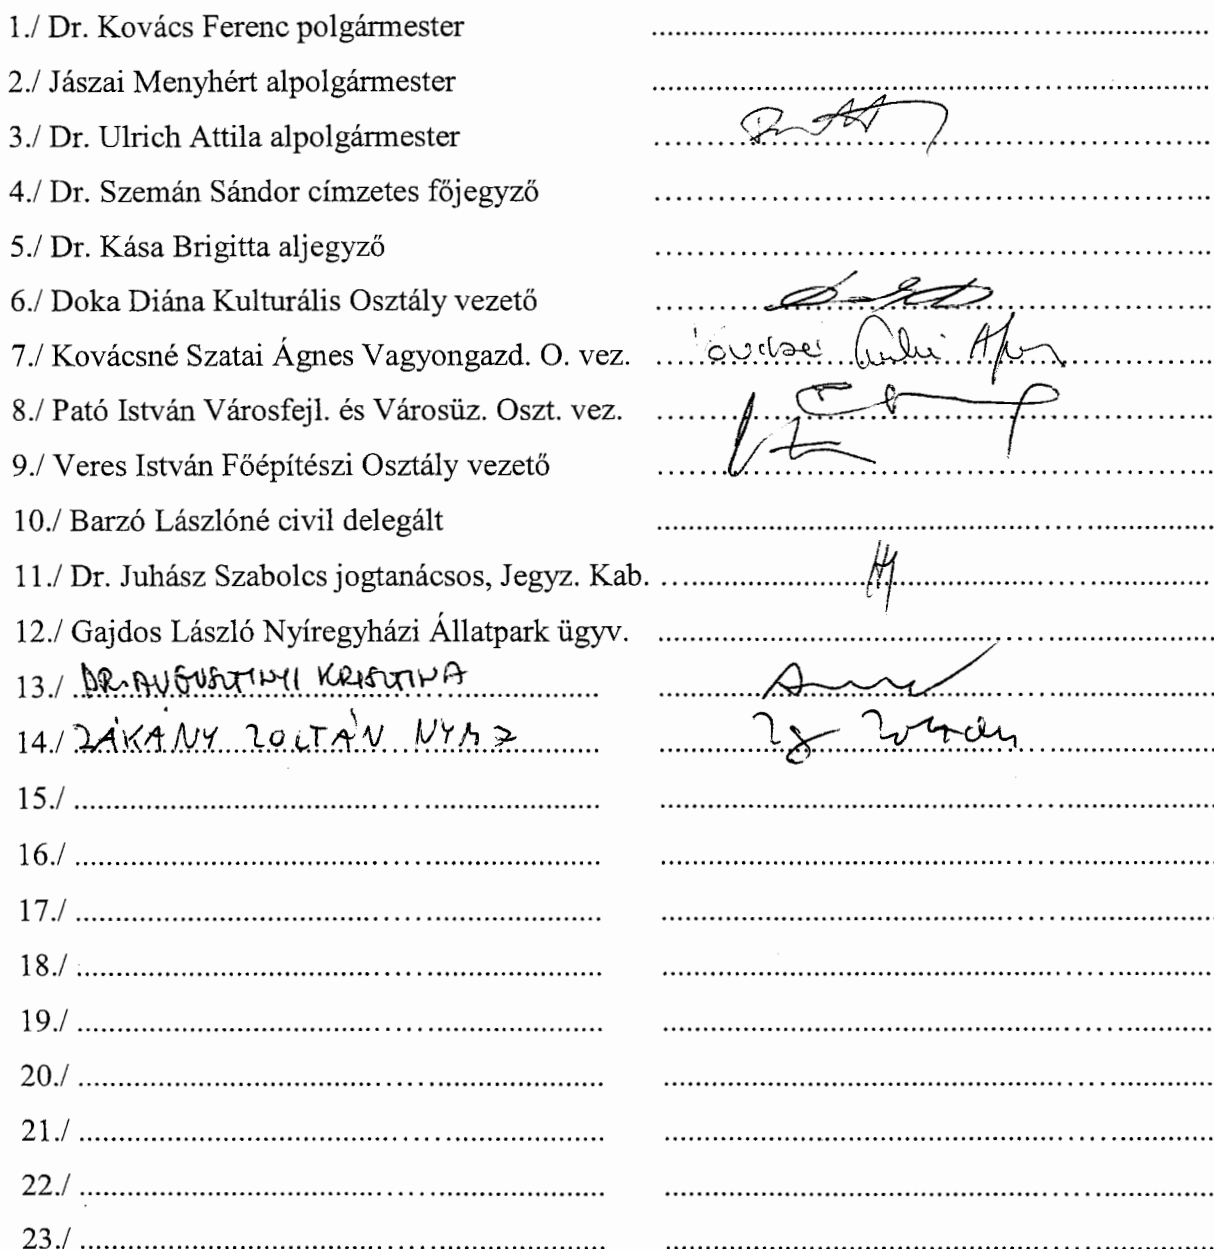 1./ Dr. Kovács Ferenc polgármester ....................
2./ Jászai Menyhért alpolgármester ....................
3./ Dr. Ulrich Attila alpolgármester ....................
4./ Dr. Szemán Sándor címzetes főjegyző ....................
5./ Dr. Kása Brigitta aljegyző ....................
6./ Doka Diána Kulturális Osztály vezető ....................
7./ Kovácsné Szatai Ágnes Vagyongazd. O. vez. ....................
8./ Pató István Városfejl. és Városüz. Oszt. vez. ....................
9./ Veres István Főépítészi Osztály vezető ....................
10./ Barzó Lászlóné civil delegált ....................
11./ Dr. Juhász Szabolcs jogtanácsos, Jegyz. Kab. ....................
12./ Gajdos László Nyíregyházi Állatpark ügyv. ....................
13./ DR. AUGUSZTINYI KRISZTINA ....................
14./ ZÁKÁNY ZOLTÁN ....................
15./ .................... ....................
16./ .................... ....................
17./ .................... ....................
18./ .................... ....................
19./ .................... ....................
20./ .................... ....................
21./ .................... ....................
22./ .................... ....................
23./ .................... ....................